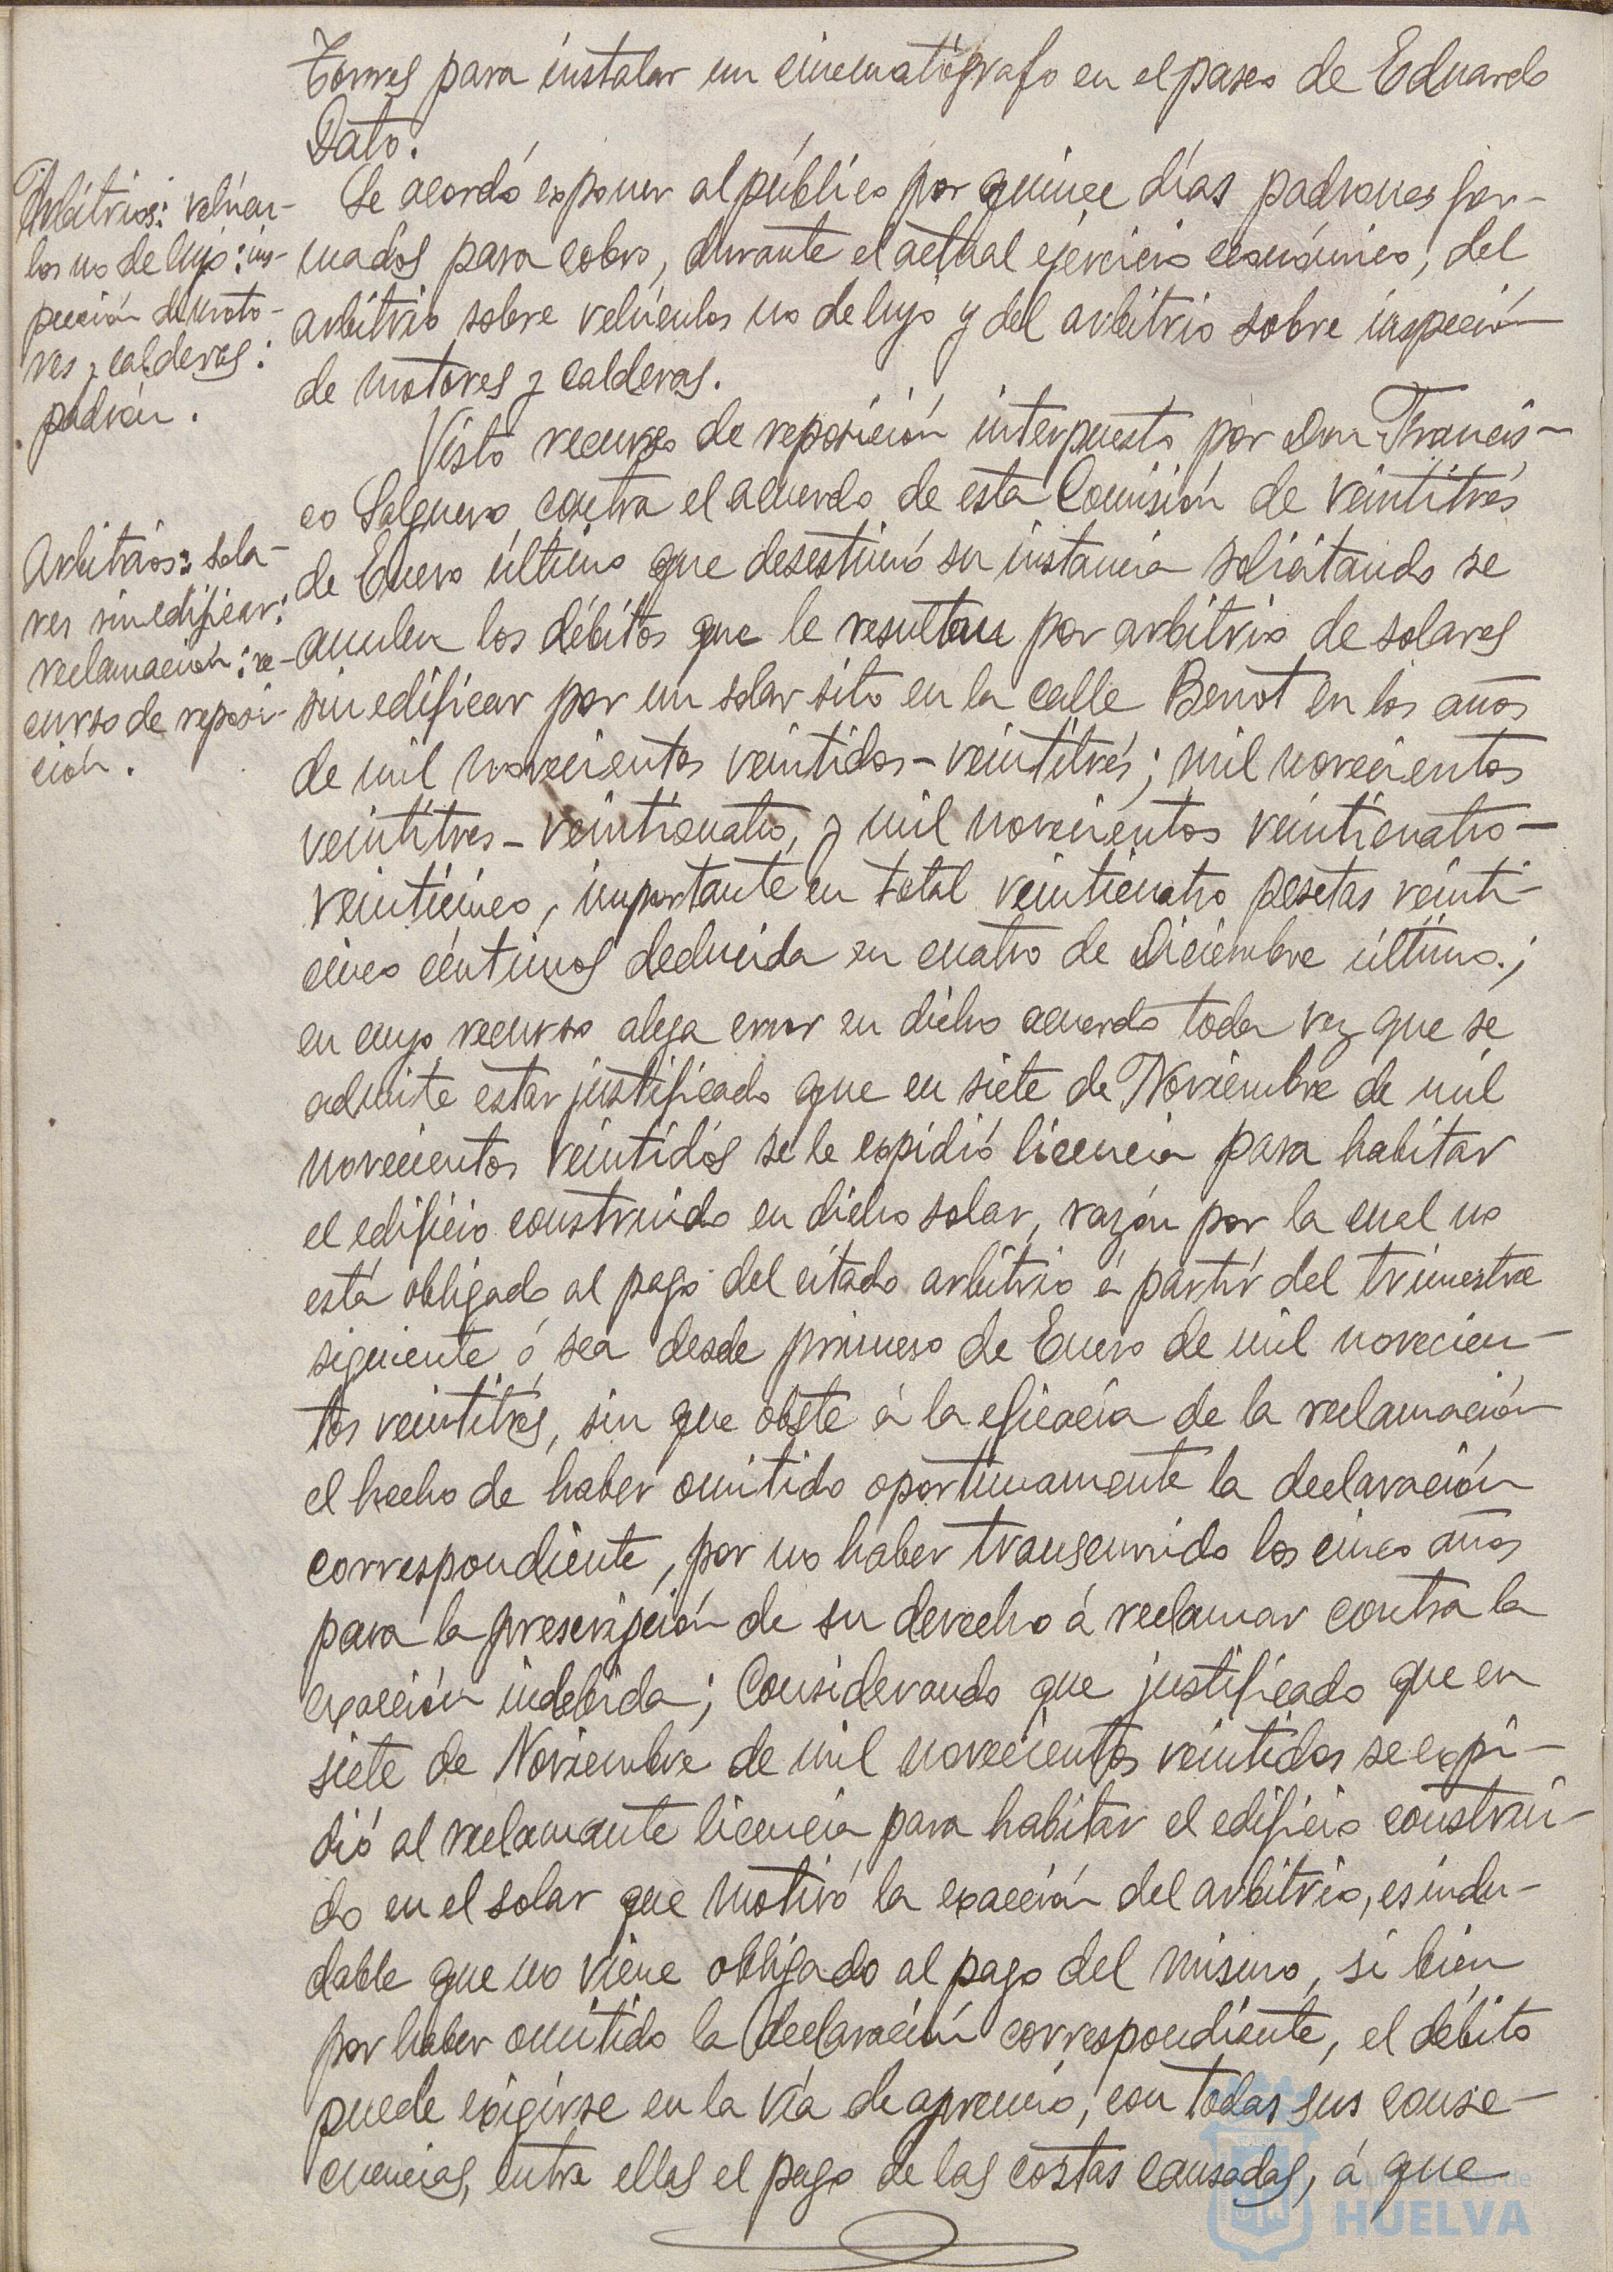 Torres para instalar un cinematógrafo en el paseo de Eduardo
Dato.
Arbitrios: vehícu-
los no de lujo: ins-
pección de moto-
res y calderas:
padrón.
Se acordó exponer al público por quince días padrones for-
mados para cobro, durante el actual ejercicio económico, del
arbitrio sobre vehículos no de lujo y del arbitrio sobre inspección
de motores y calderas.
Arbitrios: sola-
res sin edificar:
reclamación: re-
curso de reposi-
ción.
Visto recurso de reposición interpuesto por Don Francis-
co Salguero contra el acuerdo de esta Comisión de veintitrés
de Enero último que desestimó su instancia solicitando se
anulen los débitos que le resultan por arbitrio de solares
sin edificar por un solar sito en la calle Benot en los años
de mil novecientos veintidos-veintitrés; mil novecientos
veintitres-veinticuatro, y mil novecientos veinticuatro-
veinticinco, importante en total veinticuatro pesetas veinti-
cinco céntimos deducida en cuatro de Diciembre último.;
en cuyo recurso alega error en dicho acuerdo toda vez que se
admite estar justificado que en siete de Noviembre de mil
novecientos veintidós se le expidió licencia para habitar
el edificio construido en dicho solar, razón por la cual no
está obligado al pago del citado arbitrio á partir del trimestre
siguiente ó sea desde primero de Enero de mil novecien-
tos veintitrés, sin que obste á la eficacia de la reclamación
el hecho de haber omitido oportunamente la declaración
correspondiente, por no haber transcurrido los cinco años
para la prescripción de su derecho á reclamar contra la
exacción indebida; Considerando que justificado que en
siete de Noviembre de mil novecientos veintidos se expi-
dió al reclamante licencia para habitar el edificio construi-
do en el solar que motivó la exacción del arbitrio, es indu-
dable que no viene obligado al pago del mismo, si bien
por haber omitido la declaración correspondiente, el débito
puede exigirse en la vía de apremio, con todas sus conse-
cuencias, entre ellas el pago de las costas causadas, á que
Ayuntamiento de
HUELVA